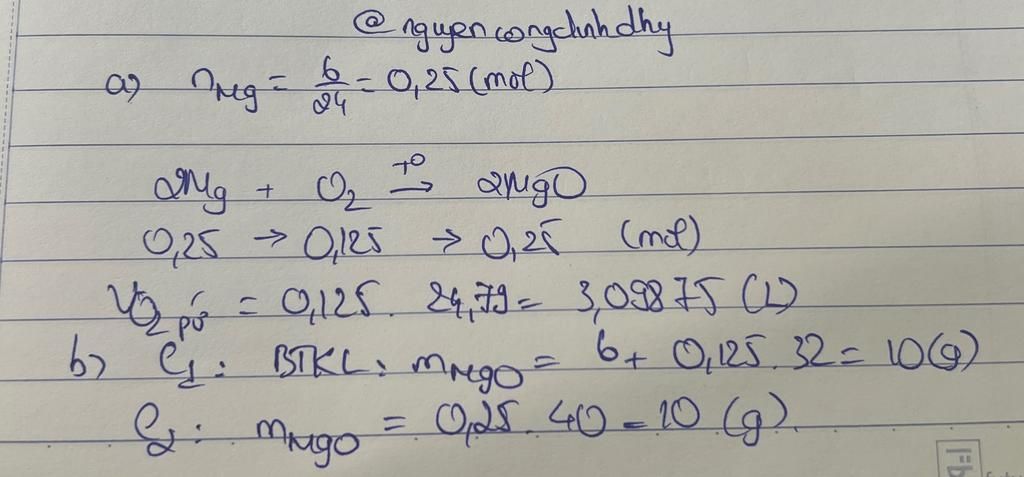 @nguyencongchnhdhy
a) nMg = 6/24 = 0,25 (mol)
2Mg + O2 →(t°) 2MgO
0,25 → 0,125 → 0,25 (mol)
VO2 pứ = 0,125 . 24,79 = 3,09875 (L)
b) C1: BTKL: mMgO = 6 + 0,125 . 32 = 10 (g)
C2: mMgO = 0,25 . 40 = 10 (g).